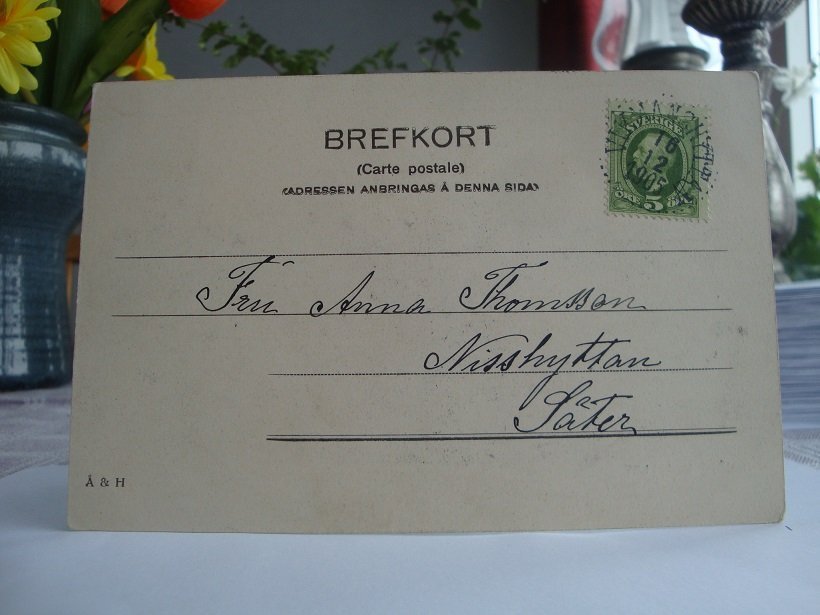 BREFKORT
(Carte postale)
(ADRESSEN ANBRINGAS Å DENNA SIDA)
SVERIGE
5
16
12
1905
Fru Anna Thomsson
Nisshyttan
Säter
Å & H